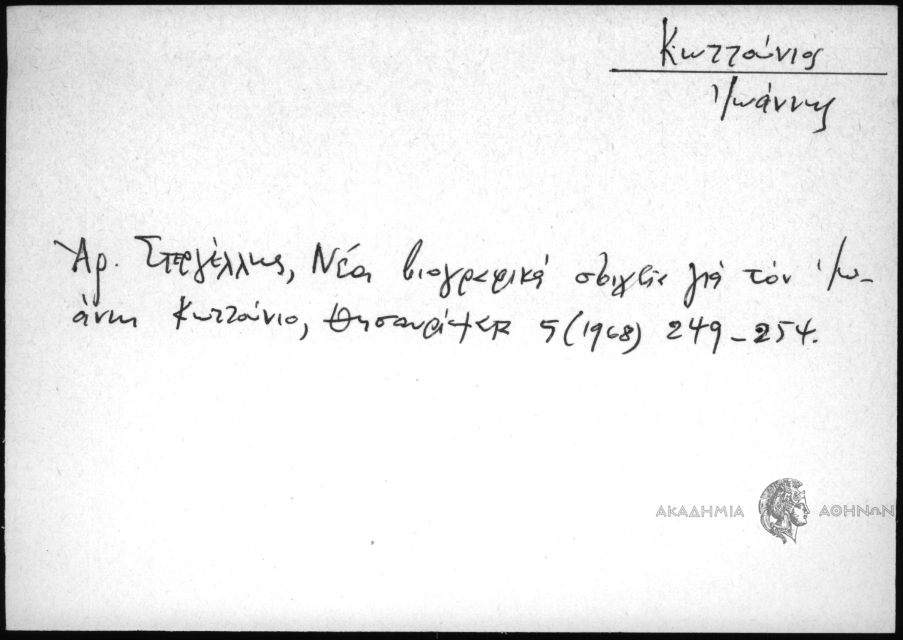 Κωττούνιος
Ἰωάννης
Ἀρ. Στεργέλλης, Νέα βιογραφικά στοιχεῖα γιά τόν Ἰω-
άννη Κωττούνιο, Θησαυρίσματα 5 (1968) 249-254.
ΑΚΑΔΗΜΙΑ ΑΘΗΝΩΝ